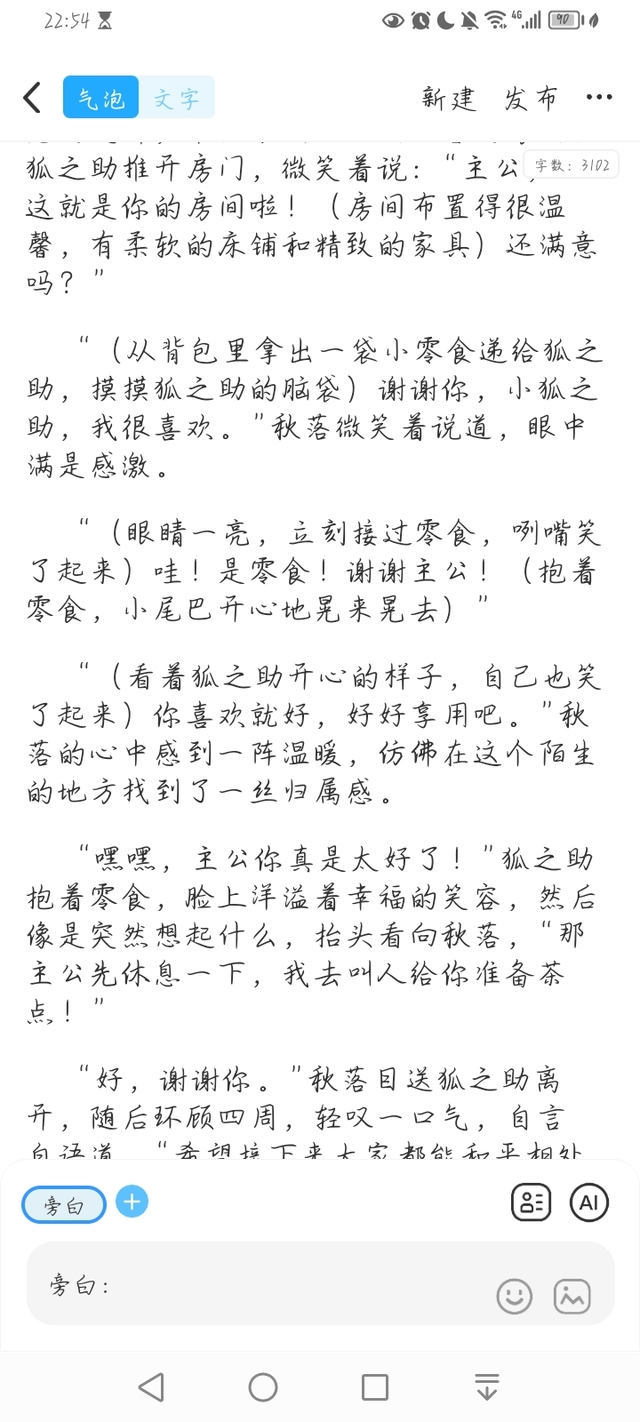 22:54
4G
90
气泡
文字
新建
发布
字数：3102
狐之助推开房门，微笑着说：“主公，
这就是你的房间啦！（房间布置得很温
馨，有柔软的床铺和精致的家具）还满意
吗？”
“（从背包里拿出一袋小零食递给狐之
助，摸摸狐之助的脑袋）谢谢你，小狐之
助，我很喜欢。”秋落微笑着说道，眼中
满是感激。
“（眼睛一亮，立刻接过零食，咧嘴笑
了起来）哇！是零食！谢谢主公！（抱着
零食，小尾巴开心地晃来晃去）”
“（看着狐之助开心的样子，自己也笑
了起来）你喜欢就好，好好享用吧。”秋
落的心中感到一阵温暖，仿佛在这个陌生
的地方找到了一丝归属感。
“嘿嘿，主公你真是太好了！”狐之助
抱着零食，脸上洋溢着幸福的笑容，然后
像是突然想起什么，抬头看向秋落，“那
主公先休息一下，我去叫人给你准备茶
点！”
“好，谢谢你。”秋落目送狐之助离
开，随后环顾四周，轻叹一口气，自言
自语道，“希望接下来大家都能和平相处
旁白
AI
旁白：